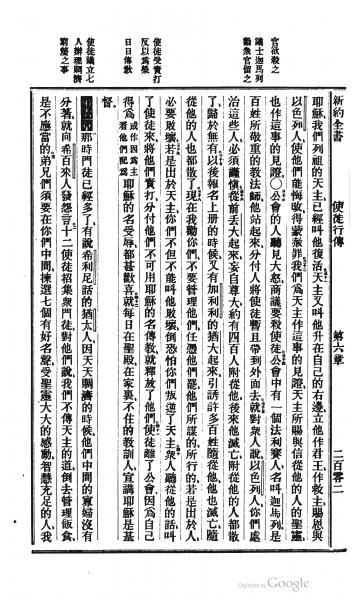 新約全書 使徒行傳 第六章 二百零二
官欲殺之
議士迦馬列
勸衆官留之
耶穌我們列祖的天主已經叫他復活天主又叫他升在自己的右邊立他作君王作救主賜恩與
以色列人使他們能悔改得蒙赦罪我們爲天主作這事的見證天主所賜與信從他的人的聖靈
也作這事的見證○公會的人聽見大怒商議要殺使徒公會中有一個法利賽人名叫迦馬列是
百姓所敬重的教法師他站起來分付人將使徒暫且帶到外面去就對衆人說以色列人你們處
治這些人必須謹慎從前丟大起來妄自尊大約有四百人附從他後來他滅亡附從他的人都散
了歸於無有以後報名上册的時候又有加利利的猶大起來引誘許多百姓隨從他他也滅亡隨
從他的人也都散了現在我勸你們不要管理他們任憑他們罷他們所謀的所行的若是出於人
必要敗壞若是出於天主你們不但不能叫他敗壞倒恐怕你們叛逆了天主衆人聽從他的話叫
使徒受責打
反以爲榮
日日傳教
了使徒來將他們責打分付他們不可用耶穌的名傳教就釋放了他們使徒離了公會因爲自己
得爲或作因爲主看他們配爲耶穌的名受辱都甚歡喜就每日在聖殿在家裏不住的教訓人宣講耶穌是基
督
使徒議立七
人辦理賙濟
窮苦之事
那時門徒已經多了有說希利尼話的猶太人因天天賙濟的時候他們中間的寡婦沒有
分著就向希百來人發怨言十二使徒招集衆門徒對他們說我們不傳天主的道倒去管理飯食
是不應當的弟兄們須要在你們中間揀選七個有好名聲受聖靈大大的感動智慧充足的人我
Digitized by Google